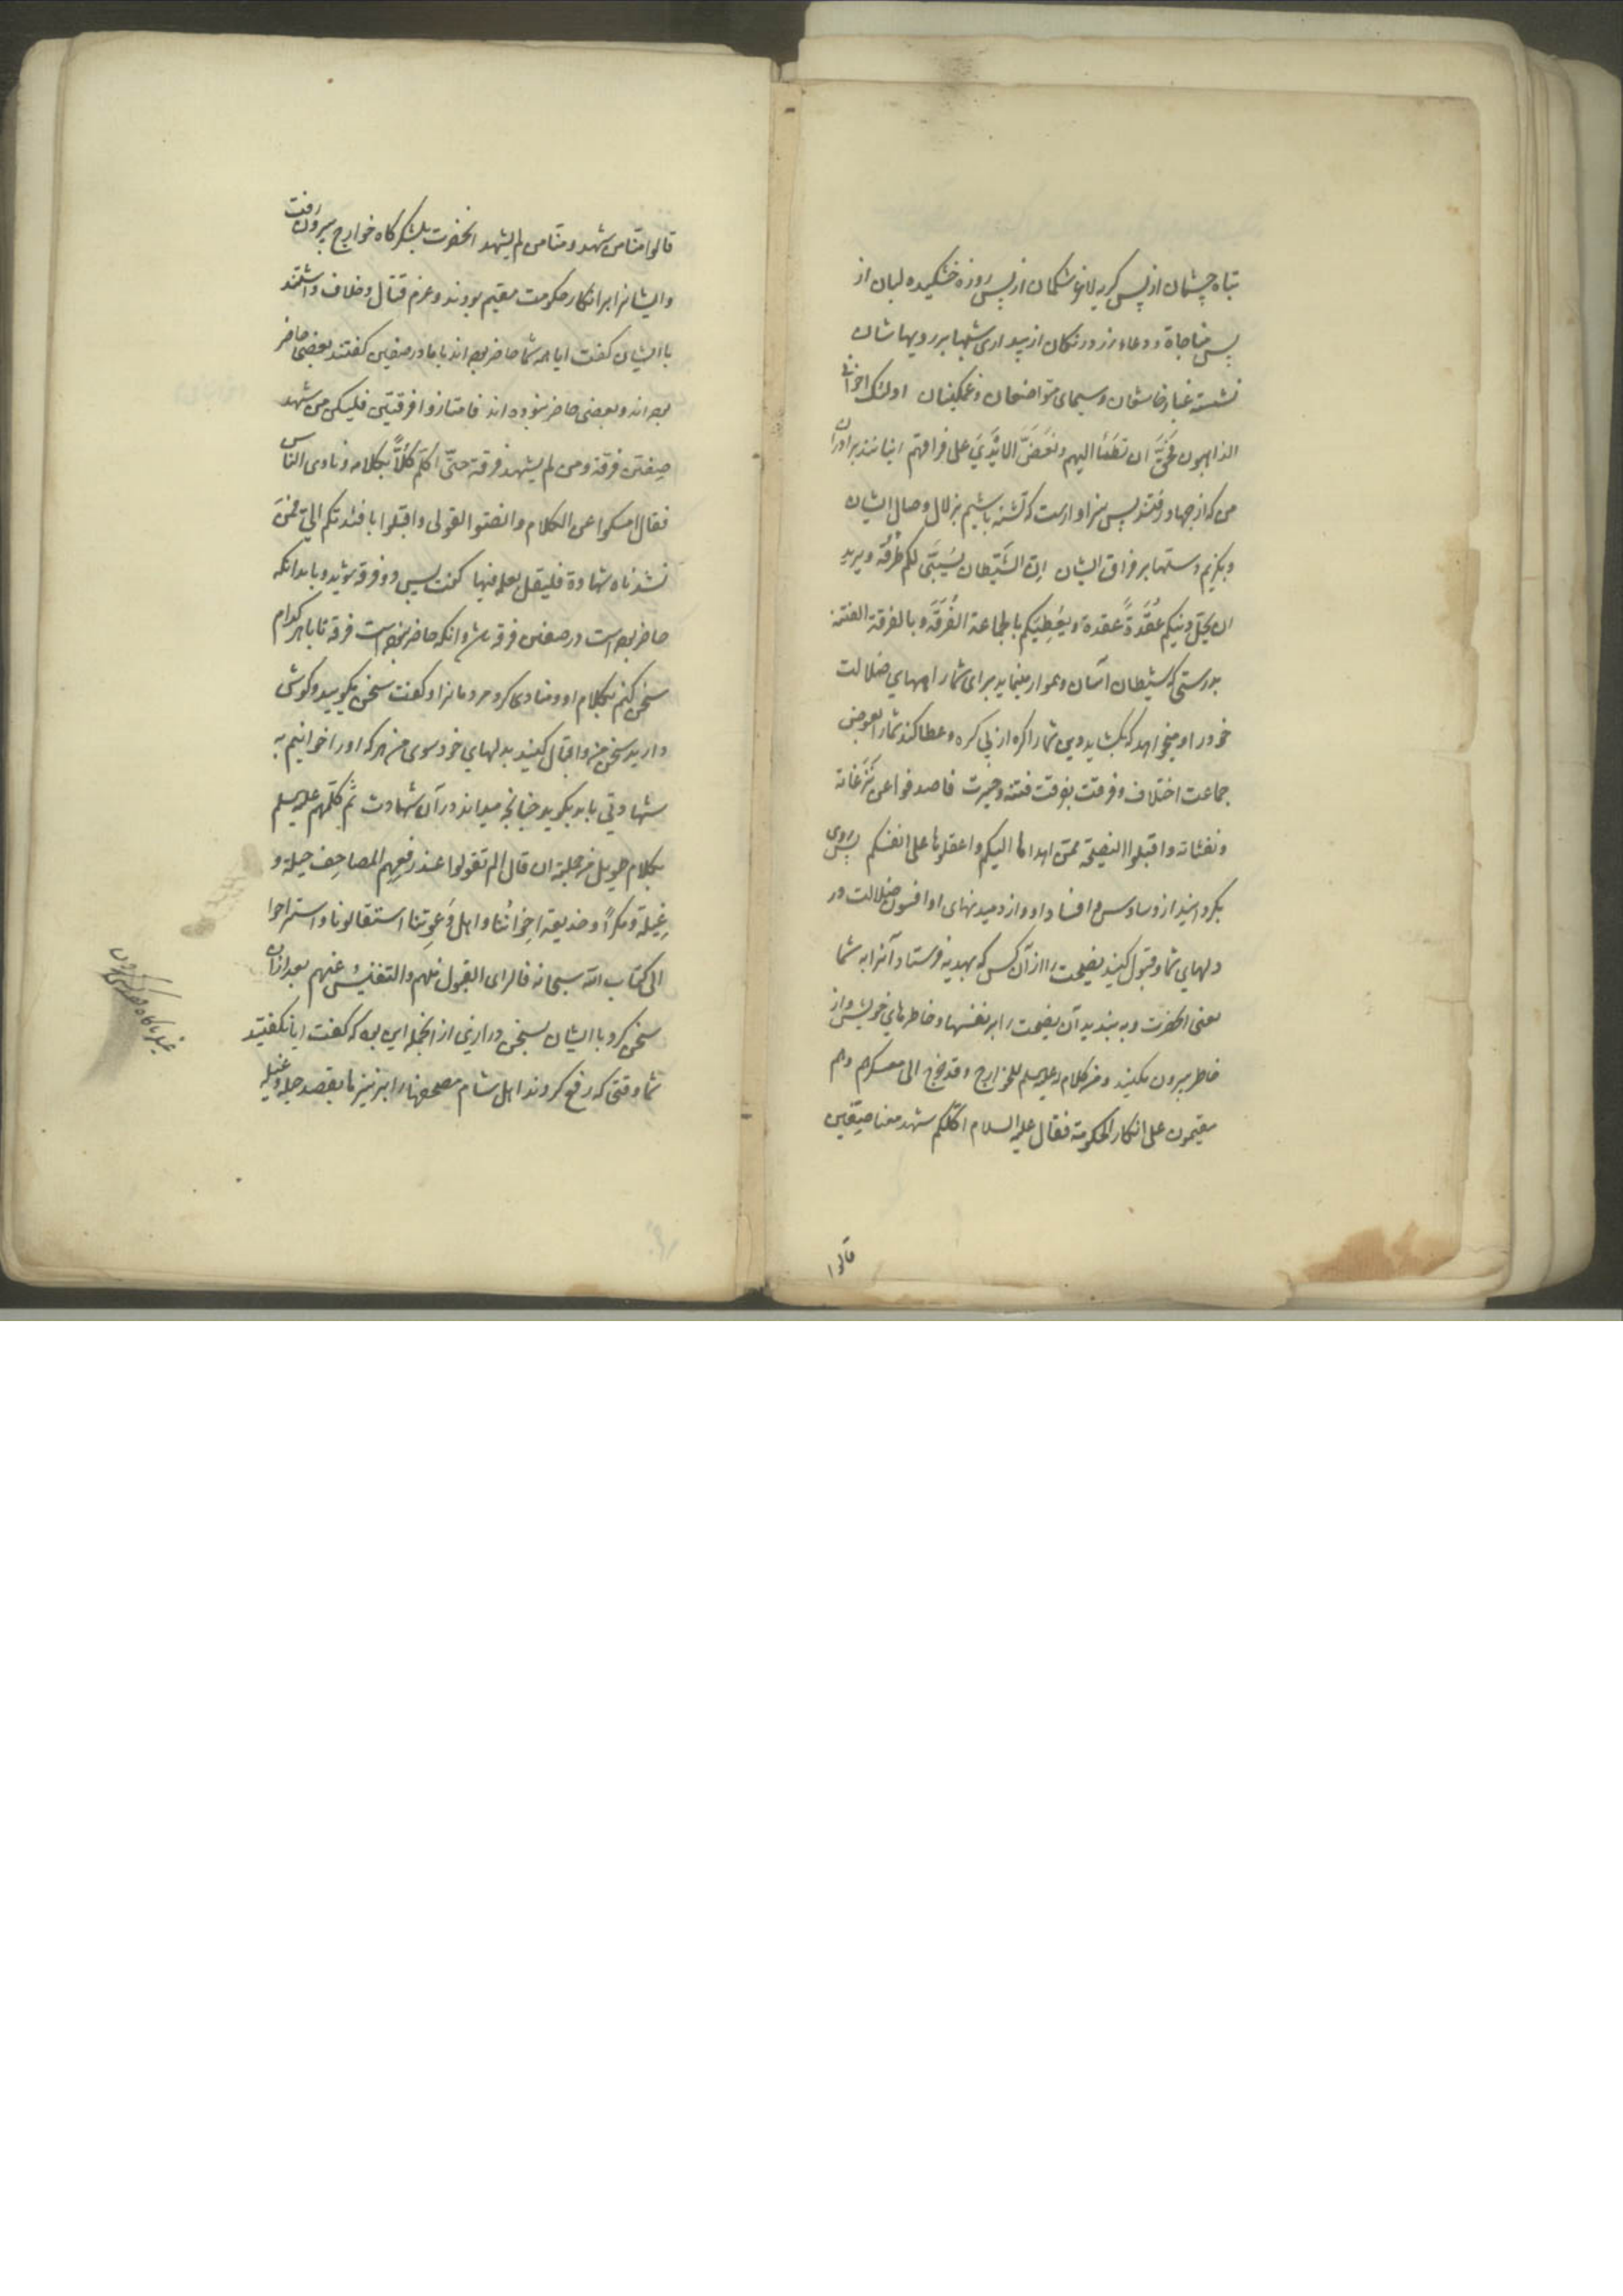 تباه چشمان از پس گریه لاغر شکمان از پس روزه خشکیده لبان از
پس مناجاة و دعاء زرد رنگان از بیداری شبها بر رویهاشان
نشسته غبار خاشعان و سیمای متواضعان و غمگینان اولئک اخوانی
الذاهبون فَحَقَّ ان نَظمَأ الیهم و نَعَضَّ الایْدِیَ علی فراقهم اینانند برادران
من که از جهاد رفتند پس سزاوارست که تشنه باشیم بزلال وصال ایشان
و بگزیم دستها بر فراق ایشان اِنّ الشیطان یُسَنّی لکم طُرُقَه و یرید
ان یَحُلّ دینکم عُقْدَةً عقدة و یُعْطِیَکم بالجماعة الفُرْقَةَ و بالفرقة الفتنة
بدرستی که شیطان آسان و هموار مینماید برای شما راههای ضلالت
خود را و میخواهد که بگشاید دین شما را گره از پی گره و عطا کند شما را بعوض
جماعت اختلاف و فرقت بفرقت فتنه و حیرت فاصدفوا عن نَزَغاته
و نفثاته و اقبلوا النصیحة ممّن اهداها الیکم و اعقلوها علی انفسکم پس روی
بگردانید از وساوس و افساد او و از دمیدنهای او افسون ضلالت در
دلهای شما و قبول کنید نصیحت را از آن کس که بهدیه فرستاد آنرا به شما
یعنی آنحضرت و به بندید آن نصیحت را بر نفسها و خاطرهای خویش و از
خاطر بیرون مکنید و من کلام له علیه السلم للخوارج و قد خرج الی معسکرهم و هم
مقیمون علی انکار الحکومة فقال علیه السلام اکلّکم شهد معنا صفّین
قالوا
قالوا منّا من شهد و منّا من لم یشهد آنحضرت بلشکرگاه خوارج بیرون رفت
و ایشانرا بر انکار حکومت مقیم بودند و عزم قتال و خلاف داشتند
با ایشان گفت ایا همه شما حاضر بوده اند با ما در صفین گفتند بعضی حاضر
بوده اند و بعضی حاضر نبوده اند فامتازوا فرقتین فلیکن من شهد
صِفّین فرقة و من لم یشهد فرقة حتّی اکلّم کُلًّا بکلامه و نادی الناس
فقال امسکوا عن الکلام و انصتوا لقولی و اقبلوا بافئدتکم الیّ فمن
نشدناه شهادة فلیقل بعلمه فیها گفت پس دو فرقه شوید و باید آنکه
حاضر بوده است در صفین فرقه باشد و انکه حاضر نبوده است فرقه تا با هر کدام
سخن کنم بکلام او و منادی کرد مردمانرا و گفت سخن مگویید و گوش
دارید سخن من و اقبال کنید بدلهای خود سوی من هر که او را خوانیم به
شهادتی باید بگوید چنانچه میداند در آن شهادت ثُمّ کلّمهم علیه السلم
بکلام طویل من جملته ان قال الم تقولوا عند رفعِهِم المصاحِف حیلة و
غِیلَة و مکرًا و خدیعة اِخوانُنا و اهل دَعوتِنا استقالونا و استراحوا
الی کتاب الله سبحانه فالرای القبول منهم و التنفیسُ عنهم بعد از آن
سخن کرد با ایشان بسخن درازی از آنجمله این بود که گفت ایا نگفتید
شما وقتی که رفع کردند اهل شام مصحفها را بر نیزها بقصد حیله و غیله